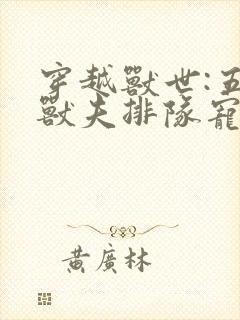 穿越獸世:五
獸夫排隊寵
黃廣林